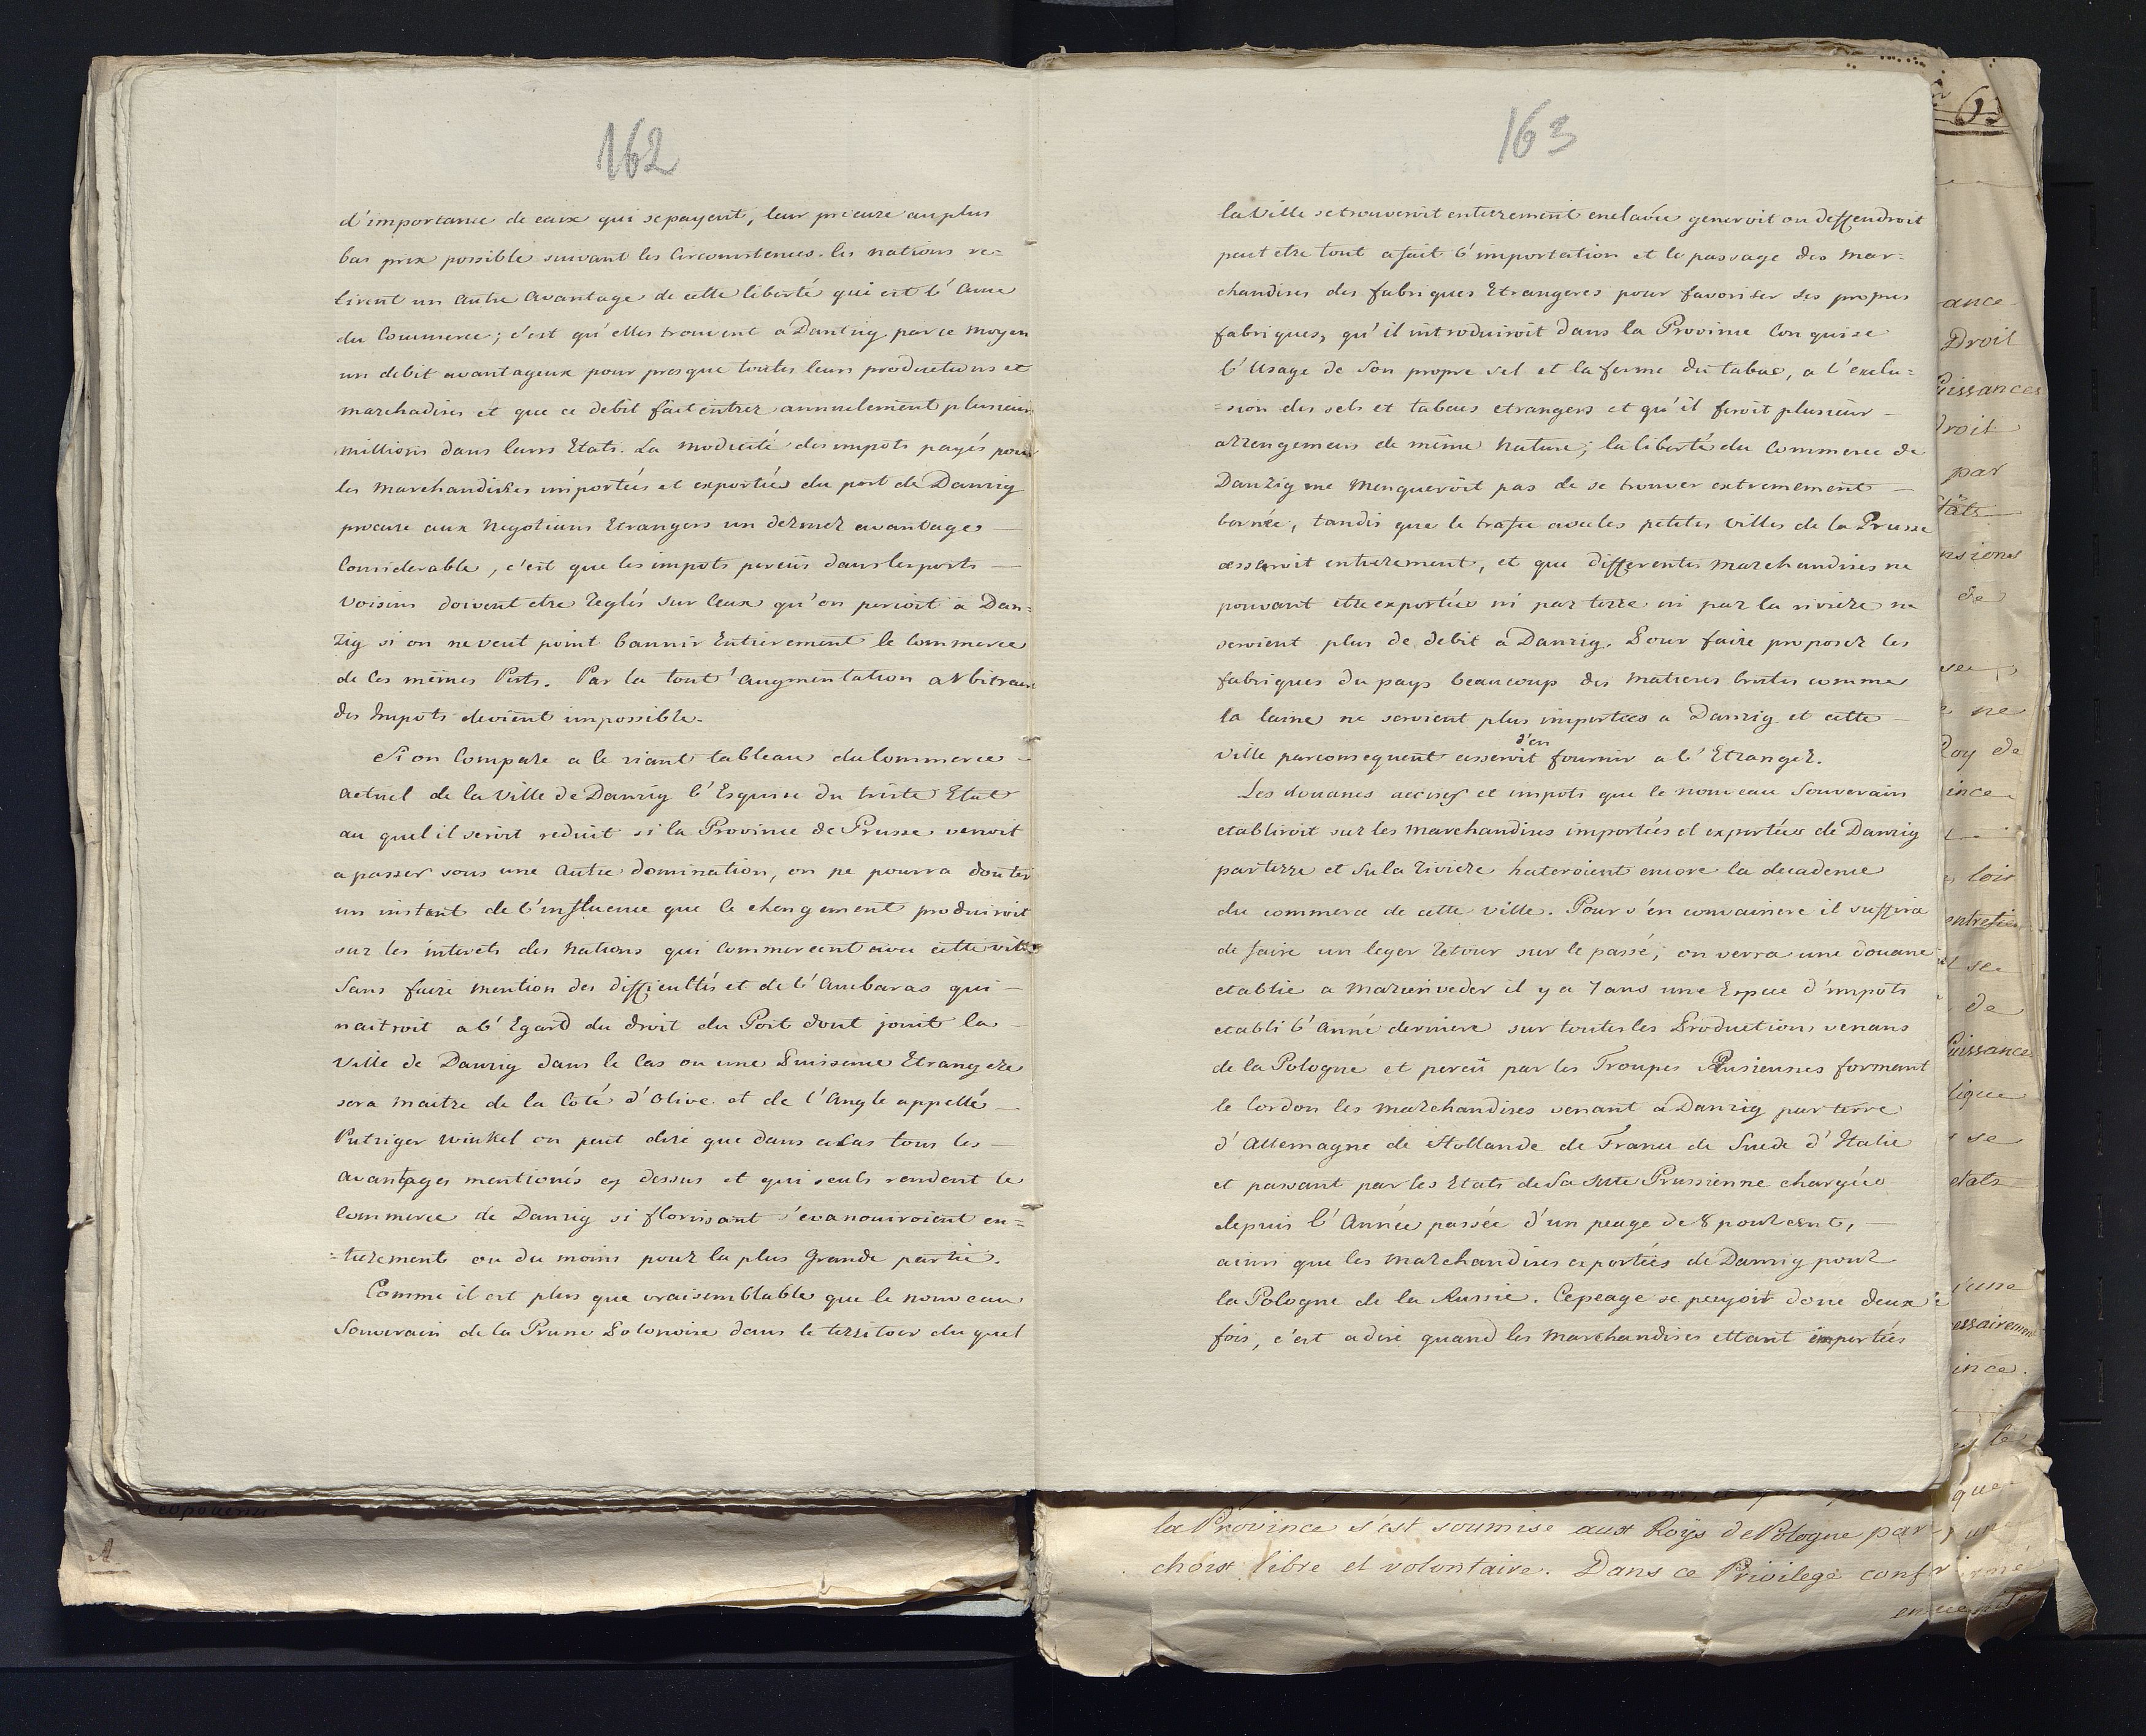 162
d'importance de ceux qui se payent, leur procure au plus
bas prix possible suivant les Circonstences. les nations re=
tirent un Autre Avantage de cette liberté qui est l'Ame
du Commerce; c'est qu'elles trouvent a Dantzig par ce moyen
un debit avantageux pour presque toutes leurs productions et
marchadises et que ce debit fait entrer annuelement plusieurs
millions dans leurs Etats. La modicité des impots payés pour
les Marchandises importées et exportées du port de Danzig
procure aux Negotians Etrangers un dernier avantage
Considerable, c'est que les impots percüs dans les ports
Voisins doivent etre reglés sur Ceux qu'on percoit a Dan=
zig si on ne veut point bannir Entierement le Commerce
de Ces mêmes Ports. Par la tout' augmentation arbitraire
des Impots devient impossible.
Si on Compare a le riant tableau du Commerce
actuel de la Ville de Danzig l'Esquise du triste Etat
au quel il seroit reduit si la Province de Prusse venoit
a passer sous une Autre domination, on ne pourra douter
un instant de l'influence que le changement produiroit
sur les interets des Nations qui Commercent avec cette ville
Sans faire mention des difficultés et de l'Ambaras qui
naitroit a l'Egard du droit du Port dont jouit la
Ville de Danzig dans le Cas ou une Puissence Etrangere
sera maitre de la Coté d'Olive et de l'Angle appellé
Putziger Winkel on peut dire que dans ce Cas tous les
avantages mentionés cy dessus et qui seuls rendent le
Commerce de Danzig si florissant s'evanouiroient en=
=tierement ou du moins pour la plus Grande partie.
Comme il est plus que vraisemblable que le nouveau
Souverain de la Prusse Polonoise dans le territoir du quel
163
la Ville se trouveroit entierement enclavée generoit ou deffendroit
peut etre tout a fait l'importation et le passage des Mar=
chandises des fabriques Etrangeres pour favoriser ses propres
fabriques, qu'il introduiroit dans la Province Conquise
l'Usage de Son propre sel et la ferme du tabac, a l'exclu=
=sion des sels et tabacs etrangers et qu'il feroit plusieur
arrengemens de même Nature; la liberté du Commerce de
Danzig ne Menqueroit pas de se trouver extremement
bornée, tandis que le trafic avec les petites Villes de la Prusse
cesseroit entierement, et que differentes Marchandises ne
pouvant etre exportées ni par terre ni par la riviere ne
seroient plus de debit a Danzig. Pour faire proposer les
fabriques du pays beaucoup des matieres brutes comme
la laine ne seroient plus importées a Danzig et cette
d'en
ville parconsequent cesseroit fournir a l'Etranger.
Les douanes accises et impots que le nouveau Souverain
etabliroit sur les Marchandises importées et exportées de Danzig
par terre et su la riviere hateroient encore la decadence
du commerce de cette ville. Pour s'en convaincre il suffira
de faire un leger retour sur le passé; on verra une douane
etablie a Marienveder il y a 7 ans une Espece d'impots
etabli l'Anné derniere sur toutes les Production venans
de la Pologne et percü par les Troupes Prusiennes formant
le Cordon les marchandises venant a Danzig par terre
d'Allemagne de Hollande de France de Suede d'Italie
et passant par les Etats de Sa Mté Prussienne chargées
depuis l'Année passée d'un peage de 8 pour cent,
ainsi que les Marchandises exportées de Danzig pour
la Pologne de la Russie. Ce peage se perçoit donc deux
fois, c'est a dire quand les Marchandises ettant importées
la Province s'est soumise aux Roÿs de Pologne par
choix libre et volontaire. Dans ce Privilege conf
ance
Droit
Puissances
droit
par
de
ne
Roy de
ince
loix
entretien
se
de
Puissance
se
etats
d'une
essairement
ince
que